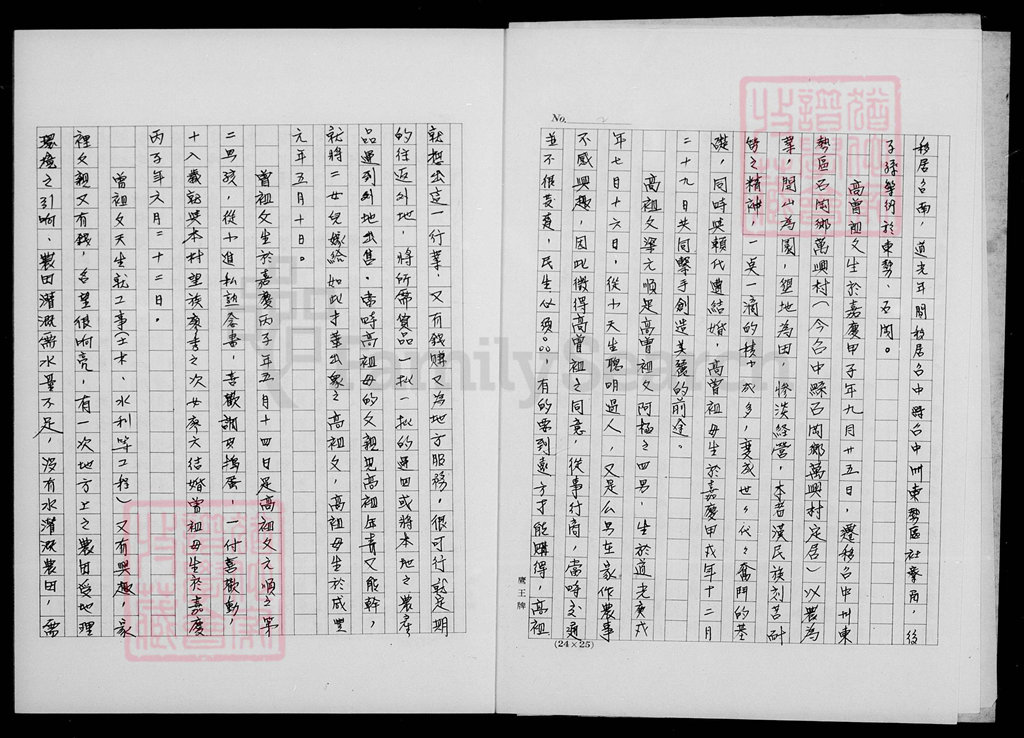 No. 2
移居台南，道光年間移居台中縣台中州東勢區社寮角，後
子孫繁衍於東勢、石岡。
高曾祖父生於嘉慶甲子年九月廿五日，遷移台中州東
勢區石岡鄉萬興村（今台中縣石岡鄉萬興村定居）以農為
業，開山為園，墾地為田，慘淡經營，本著漢民族刻苦耐
勞之精神，一點一滴的積少成多，變成世々代々奮鬥的基
礎，同時與賴代遭結婚，高曾祖母生於嘉慶甲戌年十二月
二十九日共同擊手創造美麗的前途。
高祖父梁元順是高曾祖父阿極之四男，生於道光庚戌
年七月十六日，從小天生聰明過人，又是么男在家作農事
不感興趣，因此徵得高曾祖之同意，從事行商，當時交通
並不很發達，民生必須品，有的要到遠方才能購得，高祖
鷹王牌
(24×25)
就想出這一行業，又有錢賺又為地方服務，很可行就定期
的往返外地，將所需貨品一批一批的運回或將本地之農產
品運到外地出售。當時高祖母的父親見高祖年青又能幹，
就將二女兒嫁給如此才華出眾之高祖父，高祖母生於咸豐
元年五月十日。
曾祖父生於嘉慶丙子年五月十四日是高祖父元順之第
二男孩，從小進私塾念書，喜歡調皮搗蛋，一付喜歡動，
十八歲就與本村望族廖李之次女廖六結婚曾祖母生於嘉慶
丙子年六月二十二日。
曾祖父天生就工事（土木、水利等工程）又有興趣，家
裡父親又有錢，名望很响亮，有一次地方上之農田受地理
環境之引响、農田灌溉需水量不足，沒有水灌溉農田，需
FamilySearch